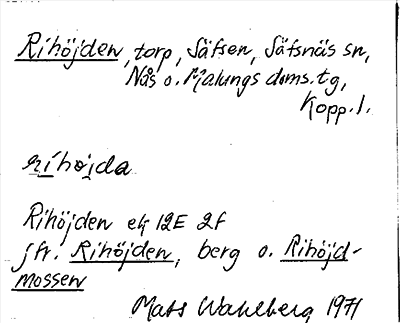 Rihöjden, torp, Säfsen, Säfsnäs sn,
Nås o. Malungs doms.tg,
Kopp.l.
rihøjda
Rihöjden ek 12E 2f
jfr. Rihöjden, berg o. Rihöjd-
mossen
Mats Wahlberg 1971